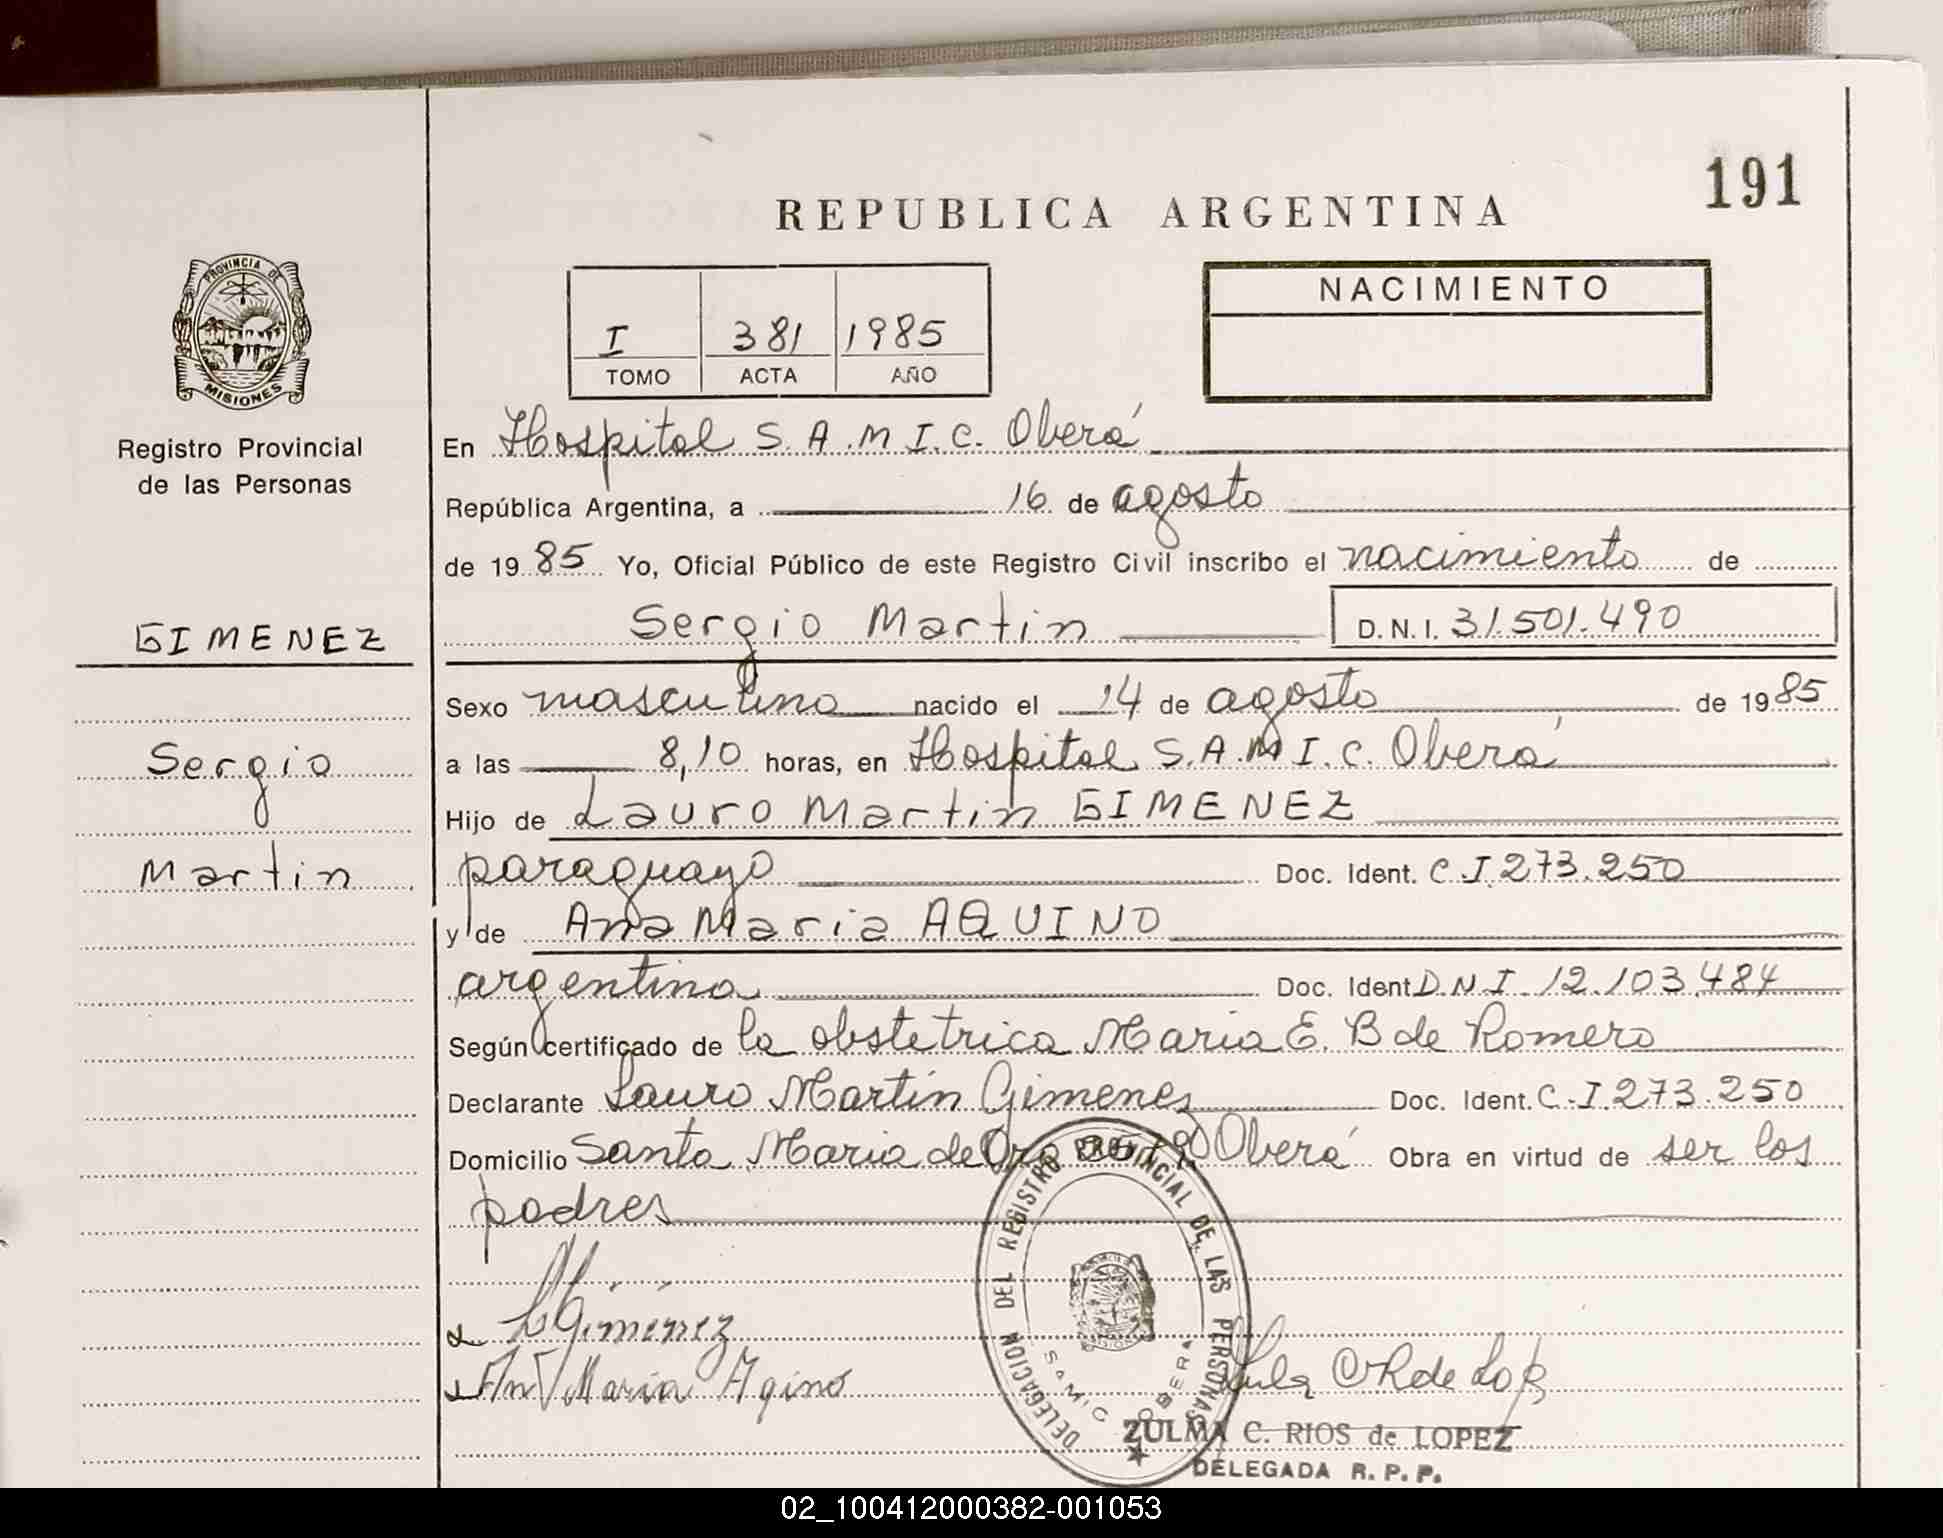 191
REPUBLICA ARGENTINA
PROVINCIA DE
MISIONES
Registro Provincial
de las Personas
GIMENEZ
Sergio
Martin
I 381 1985
TOMO ACTA AÑO
NACIMIENTO
En Hospital S.A.M.I.C. Oberá
República Argentina, a 16 de agosto
de 1985 Yo, Oficial Público de este Registro Civil inscribo el nacimiento de
Sergio Martin D.N.I. 31.501.490
Sexo masculino nacido el 14 de agosto de 1985
a las 8,10 horas, en Hospital S.A.M.I.C. Oberá
Hijo de Lauro Martin GIMENEZ
paraguayo Doc. Ident. C.I. 273.250
y de Ana Maria AQUINO
argentina Doc. Ident. D.N.I. 12.103.484
Según certificado de la obstetrica Maria E. B de Romero
Declarante Lauro Martin Gimenez Doc. Ident. C.I. 273.250
Domicilio Santa Maria de Oro Oberá Obra en virtud de ser los
padres
L Gimenez
Ana Maria Aqino
DELEGACION DEL REGISTRO PROVINCIAL DE LAS PERSONAS
SAMIC OBERA
ZULMA C. RIOS de LOPEZ
DELEGADA R. P. P.
02_100412000382-001053